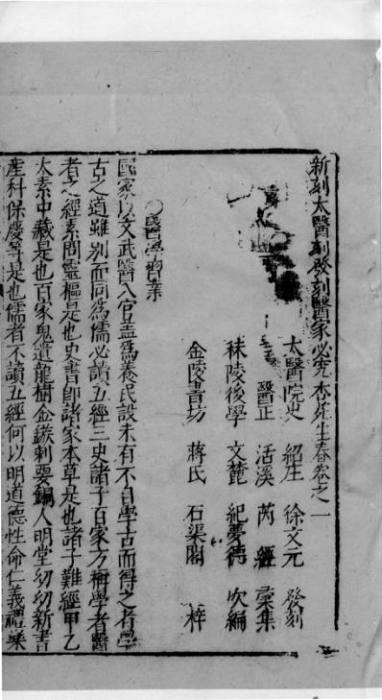 新刻太醫院發刻醫家必究杏苑生春卷之一
太醫院吏 紹庄 徐文元 發刻
醫正 活溪 芮 經 彙集
秣陵後學 文麓 紀夢德 次編
金陵書坊 蔣氏 石渠閣 梓
○醫學習業
國家以文武醫入官盖爲養民設未有不自學古而得之者學
古之道雖别而同爲儒必讀五經三史諸子百家方稱學者醫
者之經素問靈樞是也史書即諸家本草是也諸子難經甲乙
太素中藏是也百家鬼遺龍樹金鏃刺要銅人明堂幼幼新書
産科保慶等是也儒者不讀五經何以明道德性命仁義禮樂